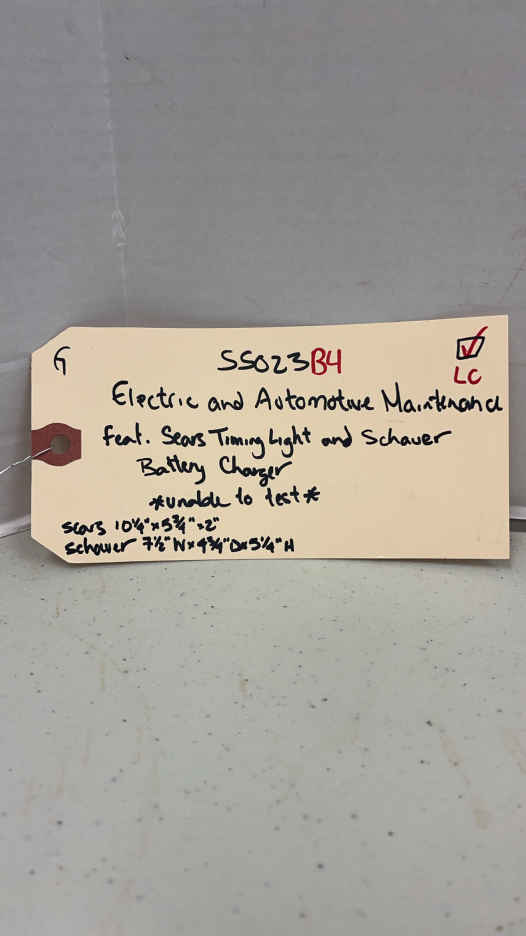 G
SS023B4
LC
Electric and Automotive Maintenance
feat. Sears Timing Light and Schauer
Battery Charger
*unable to test*
Sears 10 1/4" x 5 3/4" x 2"
Schauer 7 1/2" W x 4 3/4" D x 5 1/4" H